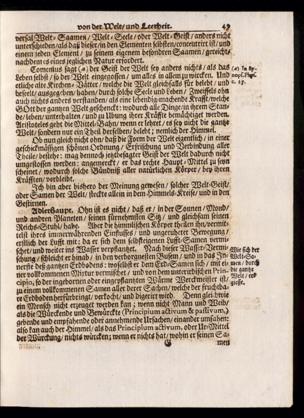 von der Welt/ und Leerheit. 49
versal Welt-Saamen/ Welt-Seele/ oder Welt-Geist/ anders nicht
unterschieden/ als daß dieser/ in den Elementen selbsten/ concentrirt ist/ und
einem jeden Element/ zu seinem eigenen besondern Saamen/ gereicht/
nachdem es eines jeglichen Natur erfordert.
Comenius sagt (a) der Geist der Welt sey anders nichts/ als das
Leben selbst/ so der Welt eingegossen/ um alles in allem zu wircken. Und
etliche alte Kirchen-Vätter/ welche die Welt gleichfalls für belebt/ und
beseelt/ ausgegeben/ haben/ durch solche Seele und Leben/ Zweifels ohn
auch nichts anders verstanden/ als eine lebendig machende Krafft/ welche
GOtt der gantzen Welt geschenckt; wodurch alle Dinge/ in ihrem Stan-
de/ leben/ unterhalten/ und zu Ubung ihrer Kräffte bemächtiget werden.
Aristoteles geht die Mittel-Bahn/ wenn er lehret/ es sey nicht die gantze
Welt/ sondern nur ein Theil derselben/ belebt; nemlich der Himmel.
Ob nun gleich nicht ohn/ daß die Form der Welt eigentlich/ in einer
geschicklichmäßigen schönen Ordnung/ Erfrischung und Verbindung aller
Theile/ bestehe: mag dennoch jetztbesagter Geist der Welt dadurch nicht
umgestossen werden: angemerckt/ er das rechte Haupt-Mittel zu seyn
scheinet/ wodurch solche Bündniß aller natürlichen Körper/ bey ihren
Kräfften/ verbleibt.
Ich bin aber bisher der Meinung gewesen/ solcher Welt-Geist/
oder Samen der Welt/ steckte allein in dem Himmels-Kreise/ und in den
Gestirnen.
Adlerhaupt. Ohn ist es nicht/ daß er/ in der Sonnen/ Mond/
und andren Planeten/ seinen fürnehmsten Sitz/ und gleichsam seinen
Reichs-Stuhl/ habe. Aber die himmlischen Körper strahlen ihm/ ver-
mittelst ihres immerwährenden Einflusses/ und ungerührter Bewegung/
erstlich der Lufft mit: da er sich dem selbsteigenen Lufft-Samen vermi-
schet/ und weiter ins Wasser verpflantzet. Nach dieser Wasser-Vermi-
schung/ schleicht er hinab/ in den verborgensten Busen/ und in das In-
nerste des gantzen Erdbodens; woselbst er dem Erd-Samen/ mit einer
vollkommenen Mixtur vermischet/ und von dem unterirdischen Prin-
cipio, so der angebornen oder eingepflantzten Wärme Werckmeister ist/
zu einem vollkommenen Saamen aller derer Sachen/ welche der fruchtba-
re Erdboden herfürbringt/ verkocht/ und digerirt wird. Denn gleich wie
ein Mensch nicht erzeuget werden kan/ wenn nicht Mann und Weib/
als die Würckende und Bewürckte (Principium activum & passivum)
gebende und empfahende oder annehmende Ursachen/ einander umfahen:
also kan auch der Himmel/ als das Principium activum, oder Ur-Mittel
der Würckung/ nichts würcken; wenn er nichts hat/ wohin er seinen Sa-
G men
(a) In Sy-
nops. Phys.
c. 15.
Wie sich der
Welt-Sa-
men/ durch
die gantze
Welt/ er-
giesse.